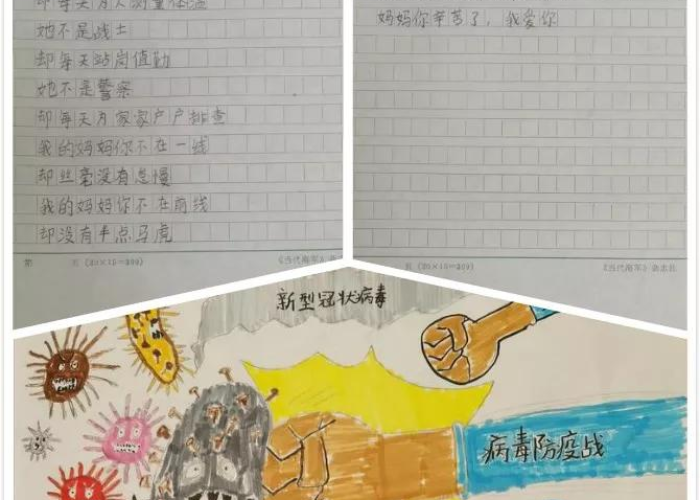 却每天为人测量体温
她不是战士
却每天站岗值勤
她不是警察
却每天为家家户户排查
我的妈妈你不在一线
却丝毫没有怠慢
我的妈妈你不在前线
却没有半点马虎
第 页(20×15=300)
妈妈你辛苦了，我爱你
页(20×15=300)
新型冠状病毒
病毒防疫战